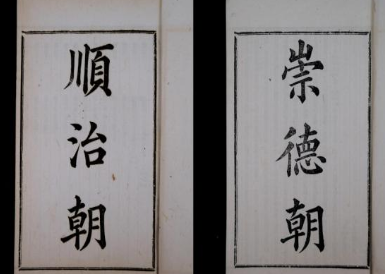 順治朝
崇德朝